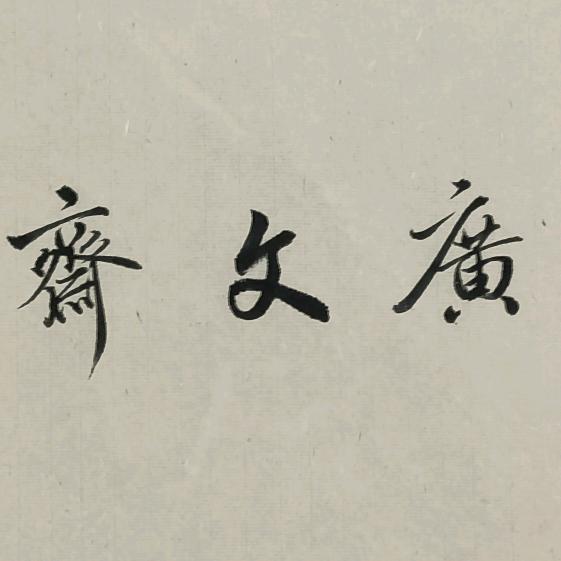 廣文齋